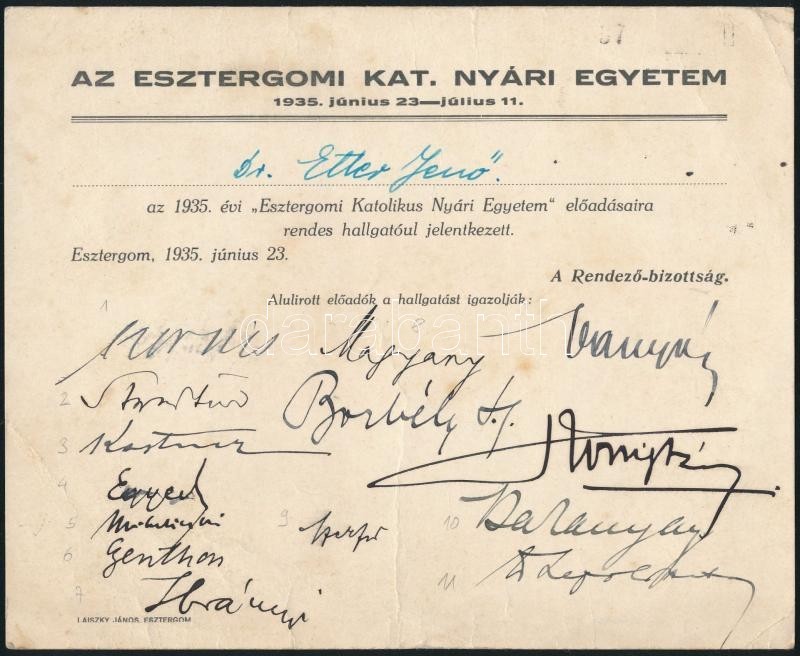 AZ ESZTERGOMI KAT. NYÁRI EGYETEM
1935. június 23—július 11.
Dr. Etter Jenő.
az 1935. évi „Esztergomi Katolikus Nyári Egyetem" előadásaira
rendes hallgatóul jelentkezett.
Esztergom, 1935. június 23.
A Rendező-bizottság.
Alulirott előadók a hallgatást igazolják:
1
Kornis Magyary 8
2
Borbély
3
Kastner
4
Egyed
5
9
10 Baranyay
6 Genthon
11
7 Ibrányi
LAISZKY JÁNOS, ESZTERGOM
darabanth